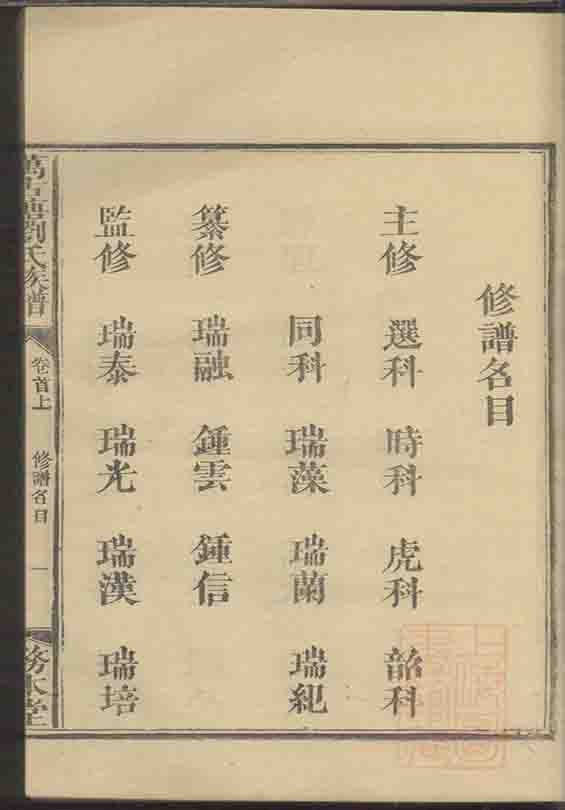 修譜名目
主修 選科 時科 虎科 韶科
同科 瑞藻 瑞蘭 瑞紀
纂修 瑞融 鍾雲 鍾信
監修 瑞泰 瑞光 瑞漢 瑞培
劉氏族譜
卷首上
修譜名目
一
務本堂